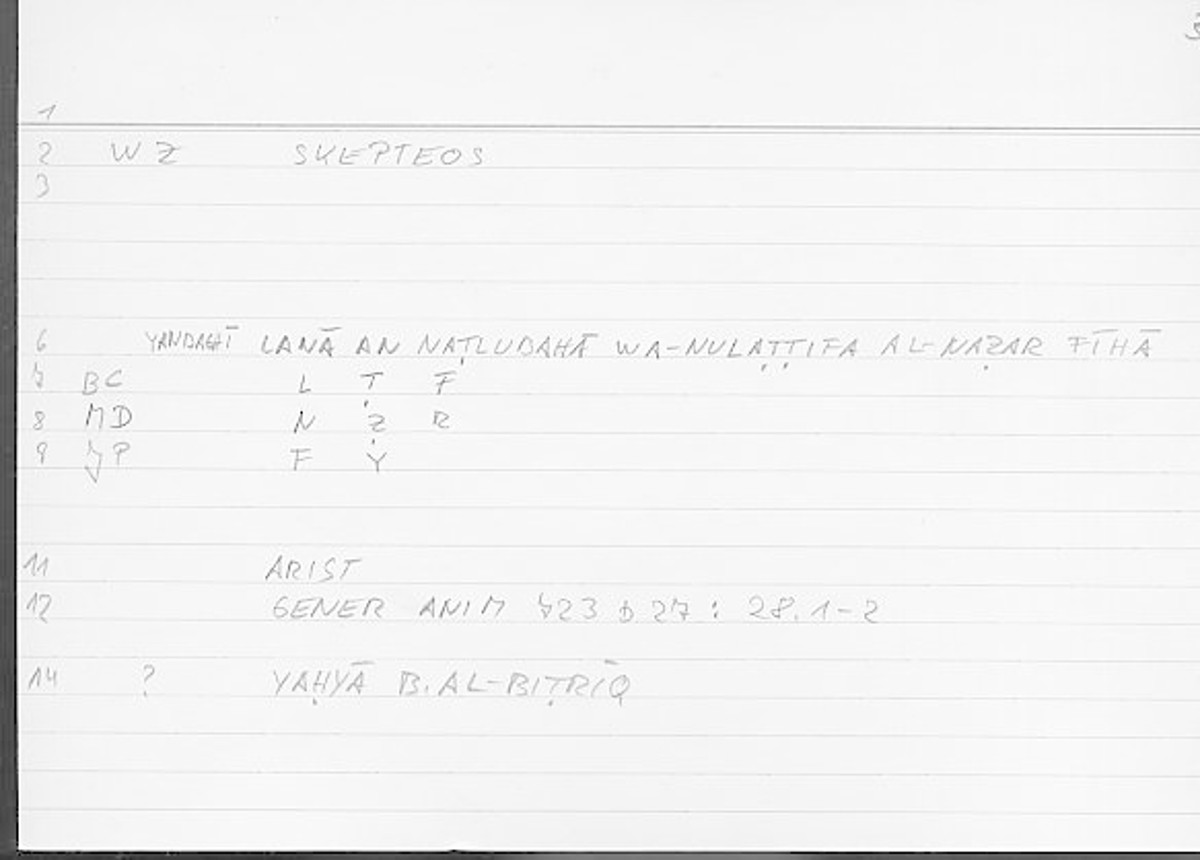 3
1
2 WZ SKEPTEOS
3
6 YANBAGHĪ LANĀ AN NAṬLUBAHĀ WA-NULAṬṬIFA AL-NAẒAR FĪHĀ
7 BC L Ṭ F
8 MD N Ẓ R
9 7P F Y
11 ARIST
12 GENER ANIM 723 b 27 : 28.1-2
14 ? YAḤYĀ B. AL-BIṬRĪQ